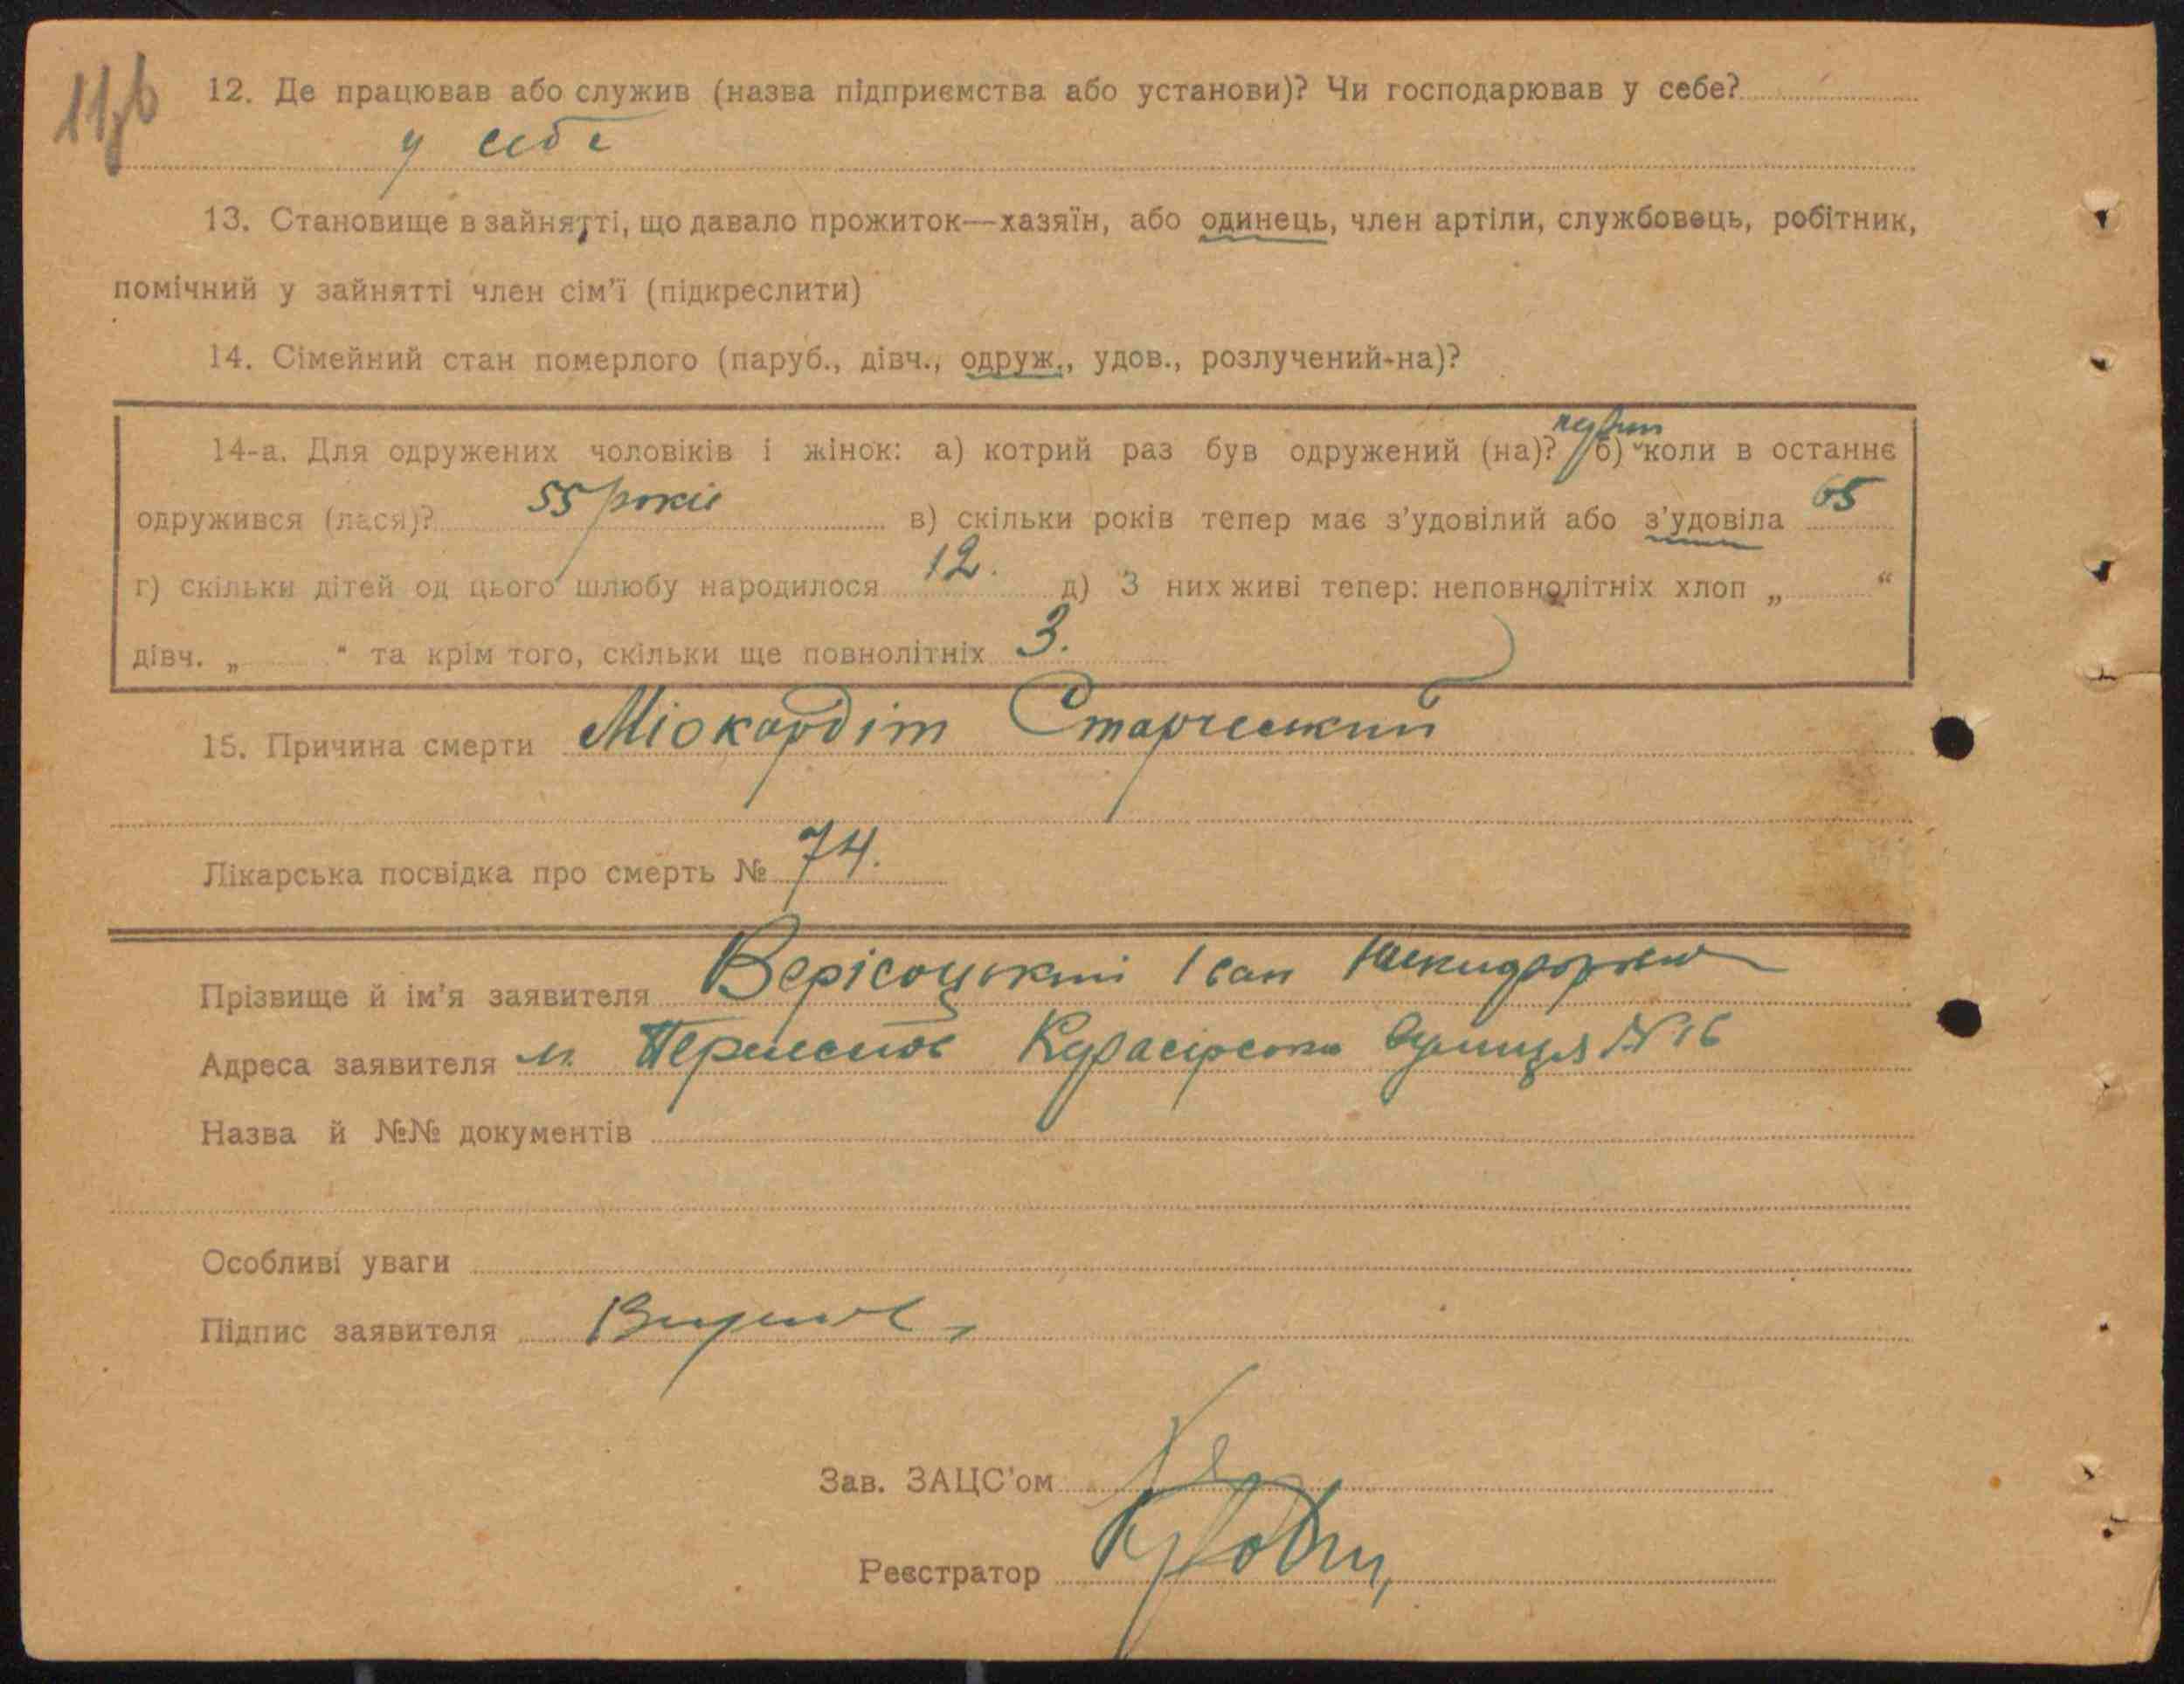 12. Де працював або служив (назва підприємства або установи)? Чи господарював у себе?
у себе
13. Становище в зайнятті, що давало прожиток—хазяїн, або одинець, член артіли, службовець, робітник,
помічний у зайнятті член сім'ї (підкреслити)
14. Сімейний стан померлого (паруб., дівч., одруж., удов., розлучений-на)?
14-а. Для одружених чоловіків і жінок: а) котрий раз був одружений (на)? б) коли в останнє
одружився (лася)? 55 років в) скільки років тепер має з'удовілий або з'удовіла 65
г) скільки дітей од цього шлюбу народилося 12. д) З них живі тепер: неповнолітніх хлоп „ “
дівч. „ “ та крім того, скільки ще повнолітніх 3.
15. Причина смерти Міокардіт Старческий
Лікарська посвідка про смерть № 74.
Прізвище й ім'я заявителя Верісоцький Іван
Адреса заявителя м. вулиця № 16
Назва й №№ документів
Особливі уваги
Підпис заявителя
Зав. ЗАЦС'ом
Реєстратор